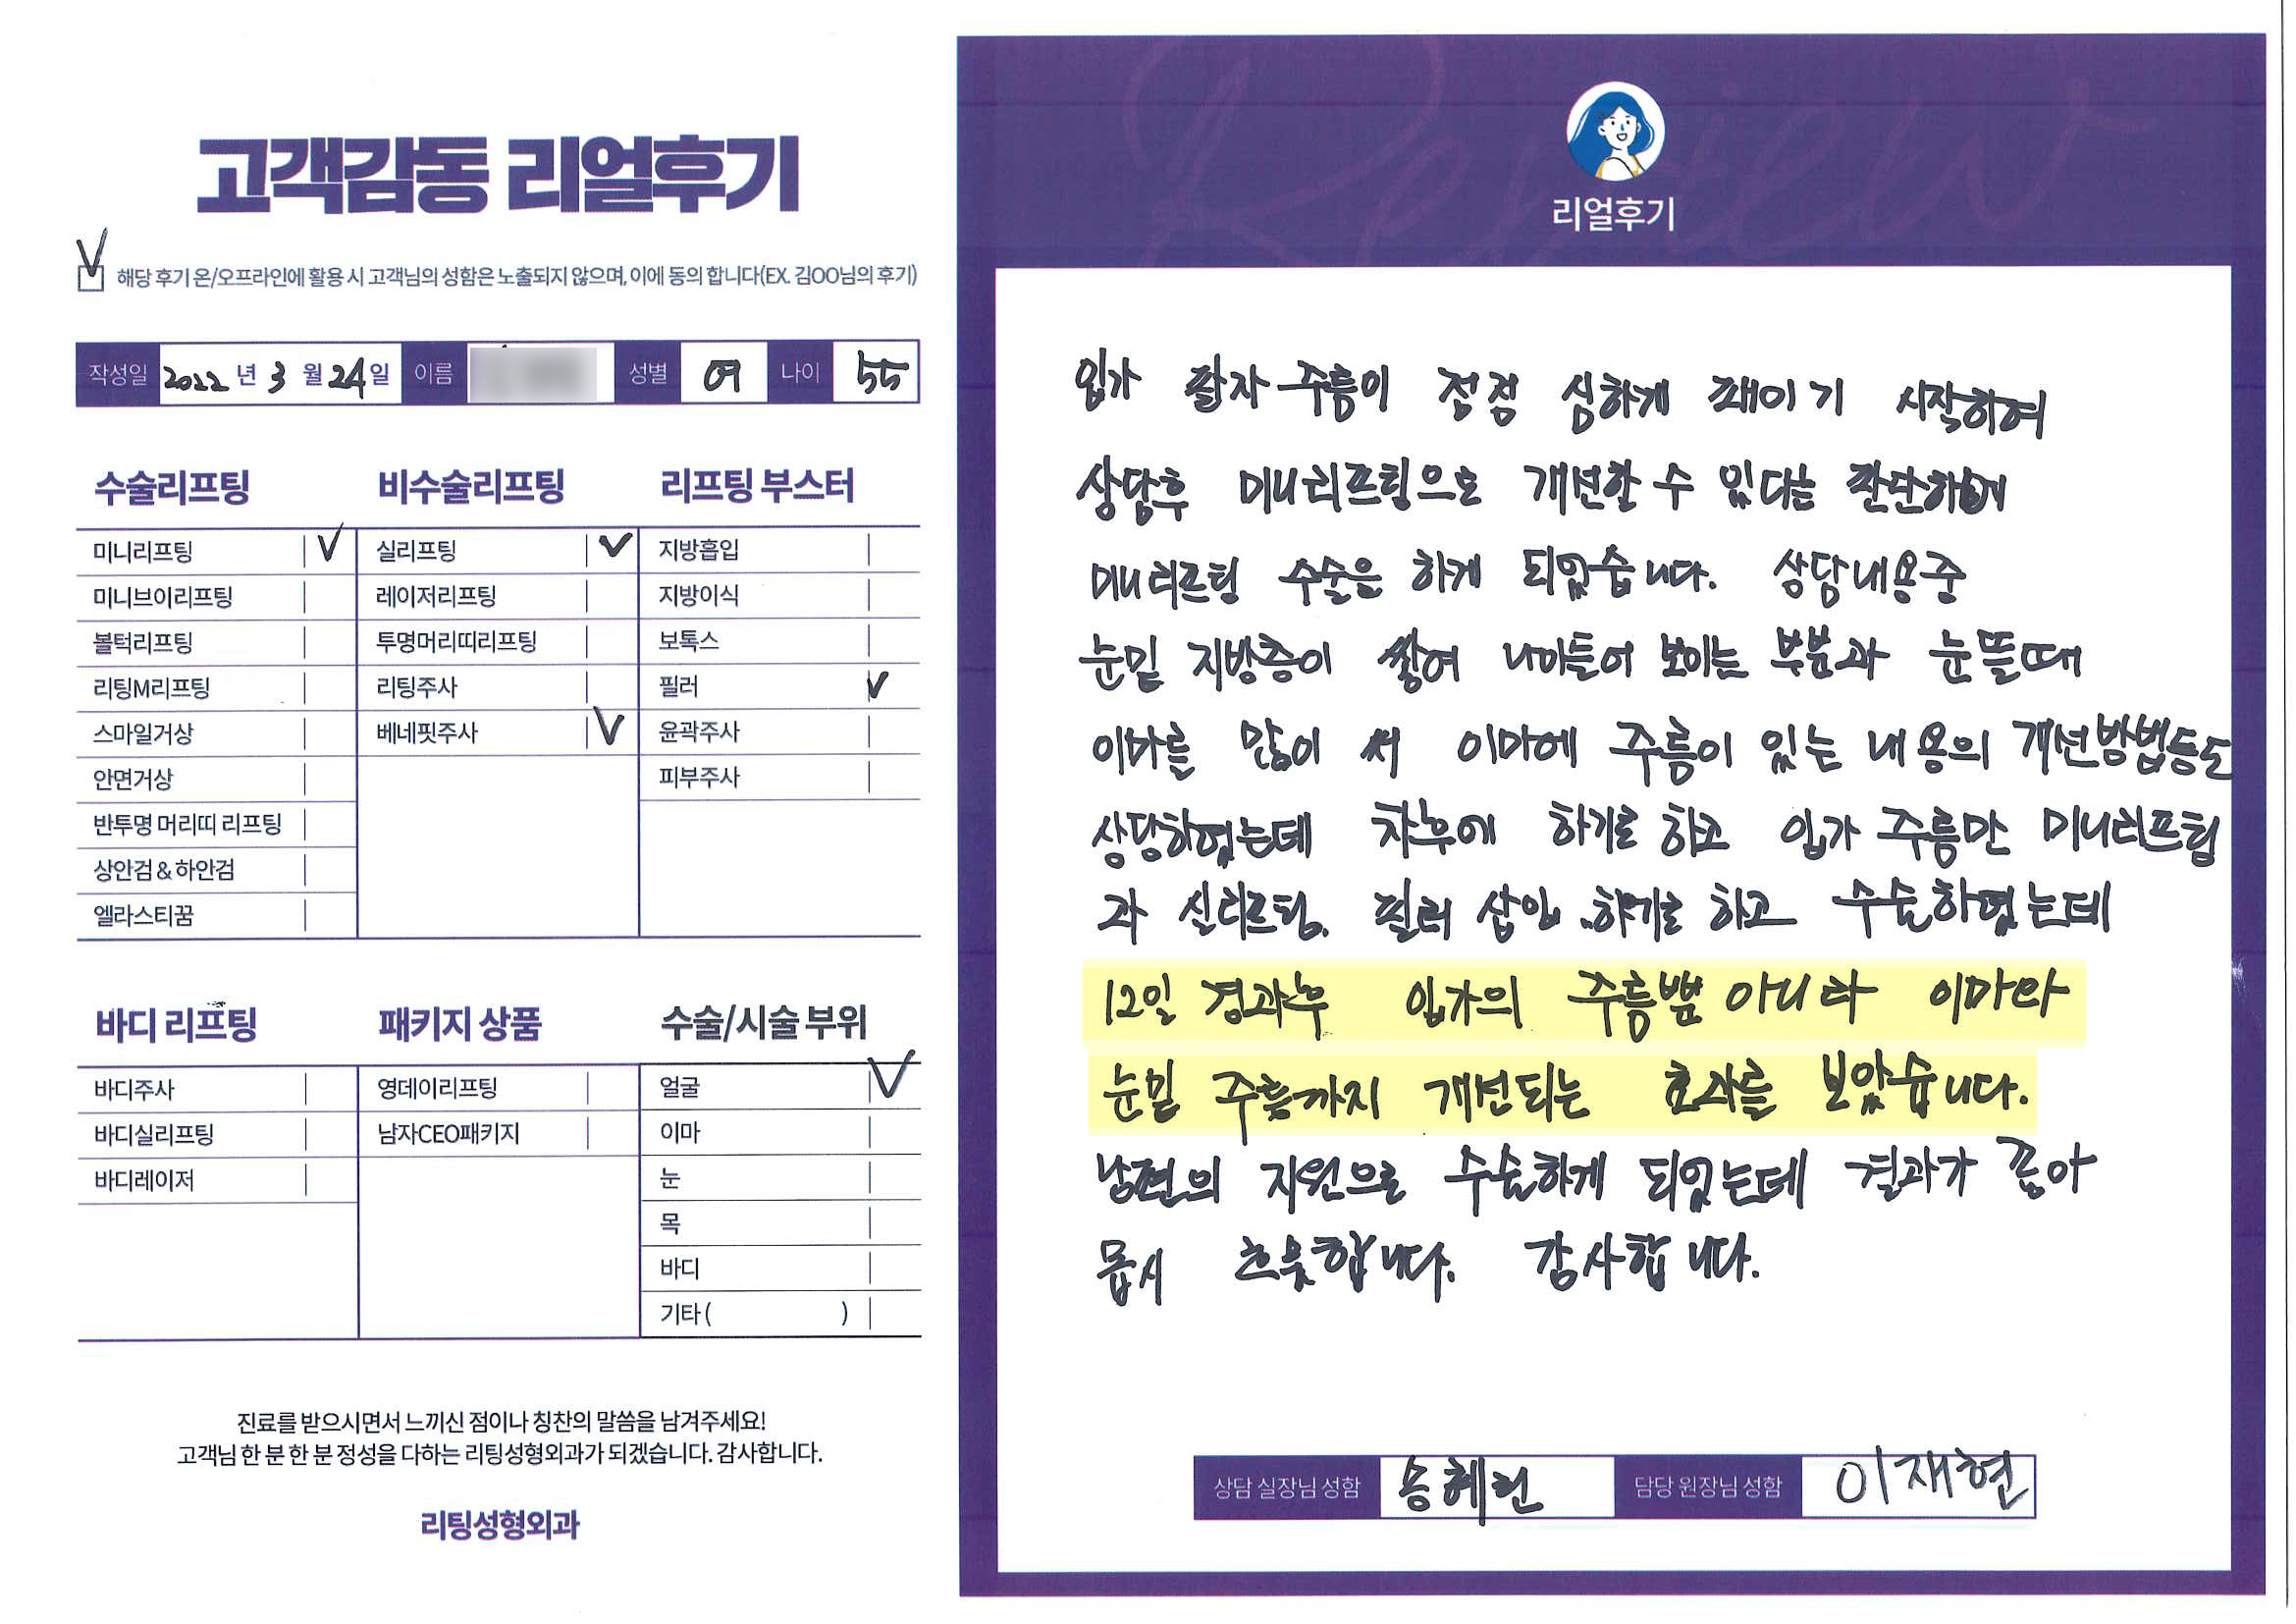 고객감동 리얼후기
해당 후기 온/오프라인에 활용 시 고객님의 성함은 노출되지 않으며, 이에 동의 합니다(EX. 김OO님의 후기)
작성일 2022 년 3 월 24 일 이름 성별 여 나이 55
수술리프팅
미니리프팅
미니브이리프팅
볼턱리프팅
리팅M리프팅
스마일거상
안면거상
반투명 머리띠 리프팅
상안검 & 하안검
엘라스티꿈
비수술리프팅
실리프팅
레이저리프팅
투명머리띠리프팅
리팅주사
베네핏주사
리프팅 부스터
지방흡입
지방이식
보톡스
필러
윤곽주사
피부주사
바디 리프팅
바디주사
바디실리프팅
바디레이저
패키지 상품
영데이리프팅
남자CEO패키지
수술/시술 부위
얼굴
이마
눈
목
바디
기타 ( )
진료를 받으시면서 느끼신 점이나 칭찬의 말씀을 남겨주세요!
고객님 한 분 한 분 정성을 다하는 리팅성형외과가 되겠습니다. 감사합니다.
리팅성형외과
Review
리얼후기
입가 팔자 주름이 점점 심하게 패이기 시작하여
상담후 미니리프팅으로 개선할 수 있다는 판단하에
미니리프팅 수술은 하게 되었습니다. 상담내용중
눈밑 지방층이 쌓여 나이들어 보이는 부분과 눈뜰때
이마를 많이 써 이마에 주름이 있는 내용의 개선방법등도
상담하였는데 차후에 하기로 하고 입가 주름만 미니리프팅
과 실리프팅. 필러 삽입 하기로 하고 수술하였는데
12일 경과후 입가의 주름뿐 아니라 이마와
눈밑 주름까지 개선되는 효과를 보았습니다.
남편의 지원으로 수술하게 되었는데 결과가 좋아
몹시 흐뭇합니다. 감사합니다.
상담 실장님 성함 송혜린 담당 원장님 성함 이재현